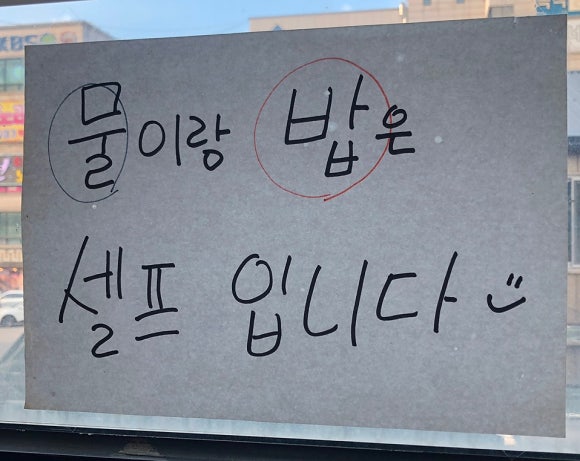 물이랑 밥은
셀프 입니다